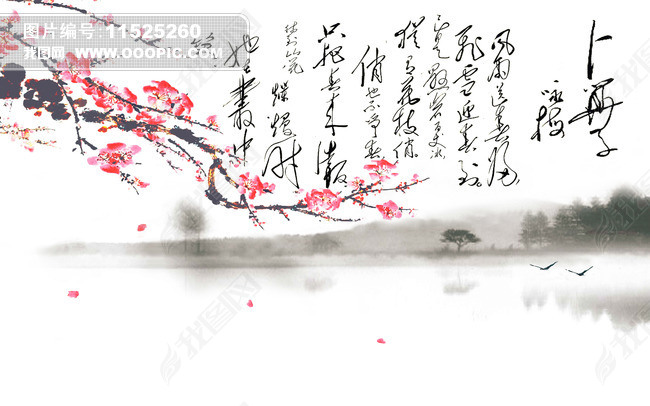 图片编号: 11525260
我图网 WWW.OOOPIC.COM
卜算子
咏梅
風雨送春歸
飛雪迎春到
已是懸岩百丈冰
猶有花枝俏
俏也不争春
只把春来報
待到山花
爛熳時
她在叢中
笑